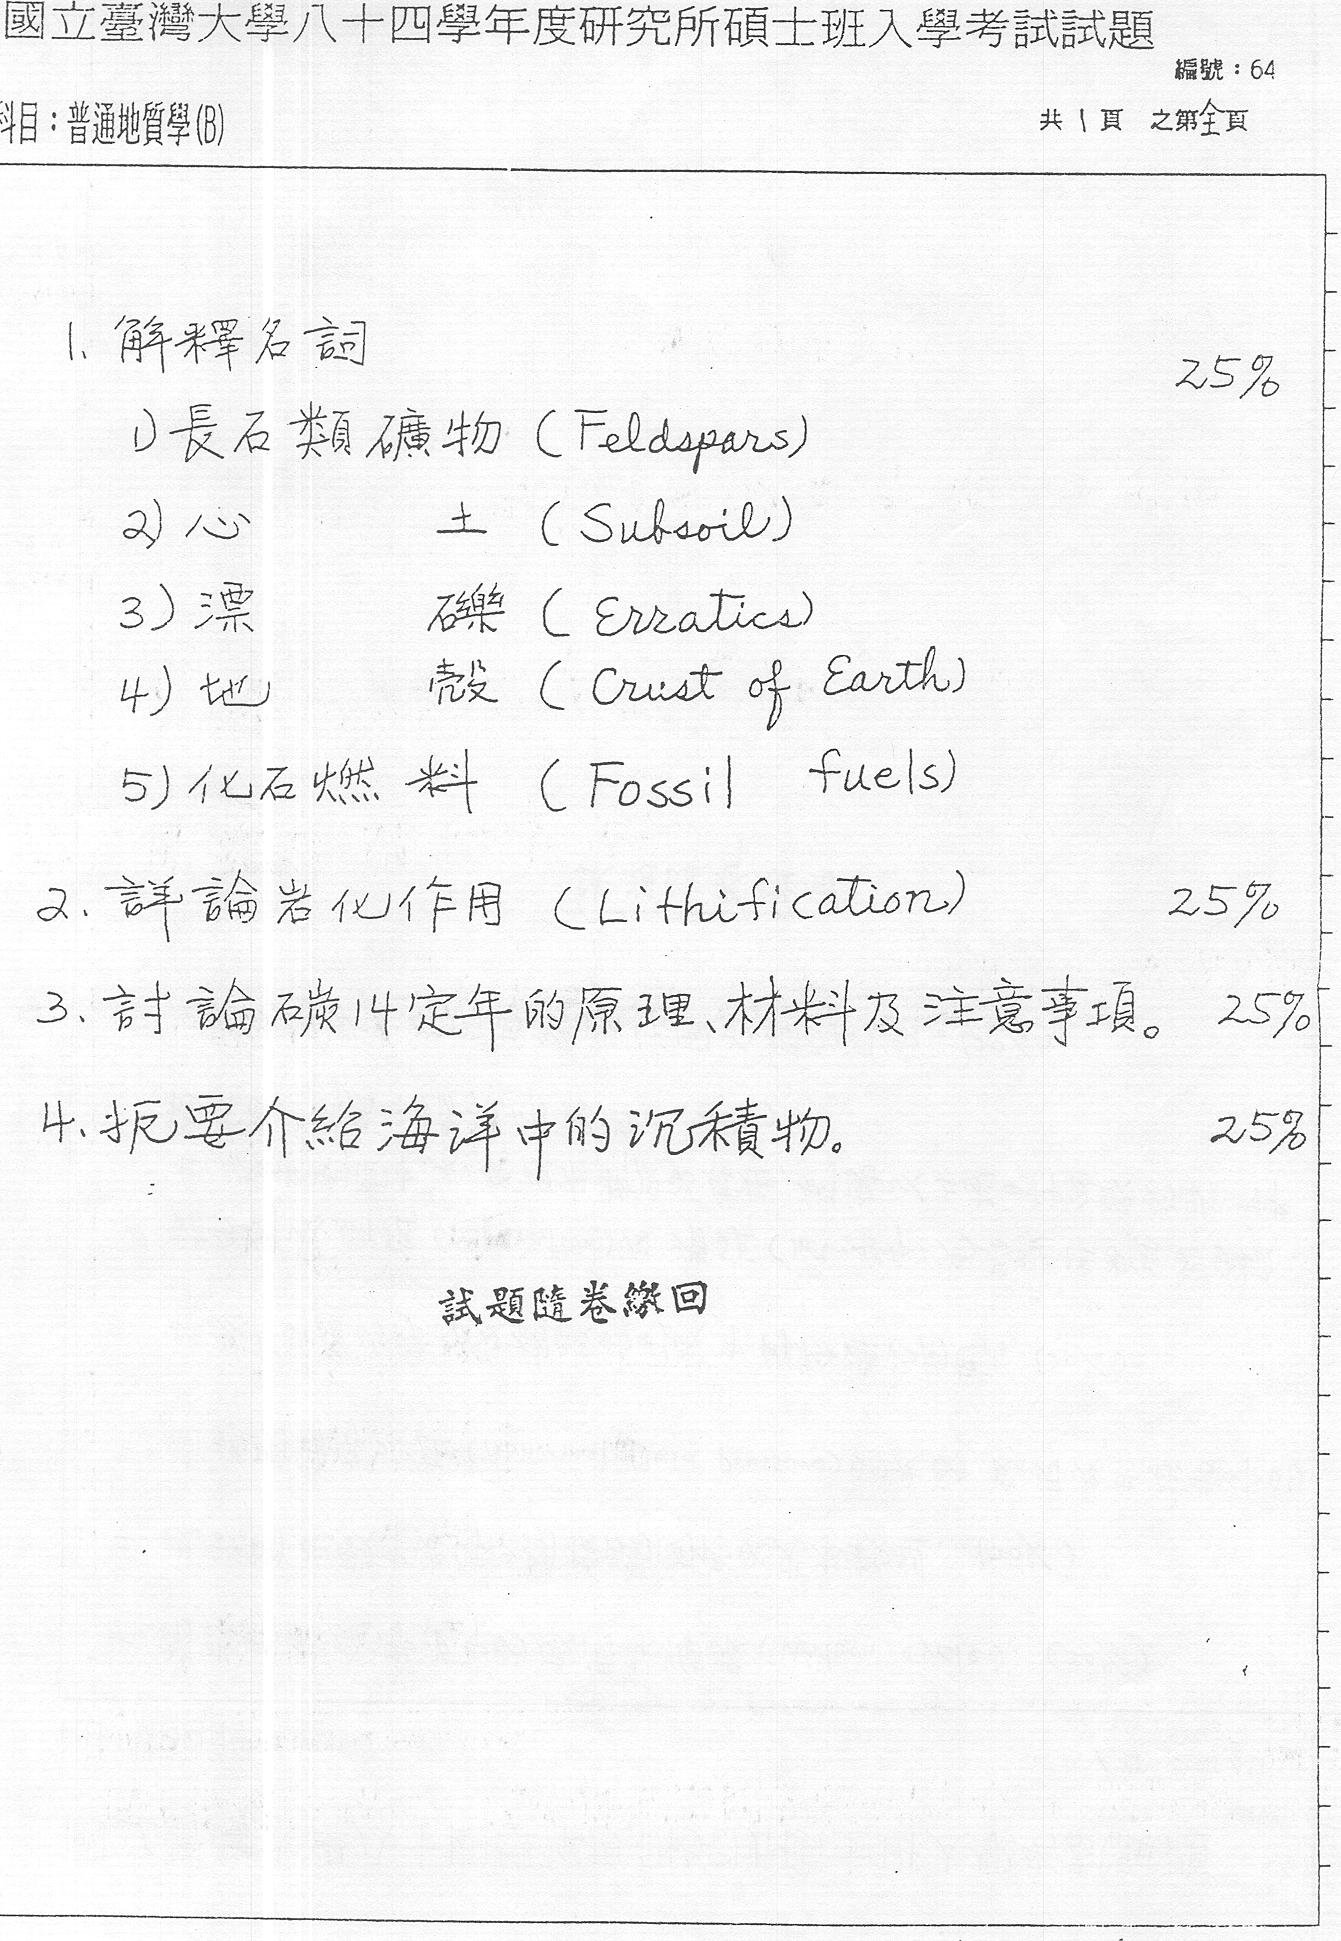 國立臺灣大學八十四學年度研究所碩士班入學考試試題
編號：64
科目：普通地質學(B)
共 1 頁 之第全頁
1. 解釋名詞
25%
1) 長石類礦物 (Feldspars)
2) 心 土 (Subsoil)
3) 漂 礫 (Erratics)
4) 地 殼 (Crust of Earth)
5) 化石燃料 (Fossil fuels)
2. 詳論岩化作用 (Lithification) 25%
3. 討論碳14定年的原理、材料及注意事項。 25%
4. 扼要介紹海洋中的沉積物。 25%
試題隨卷繳回